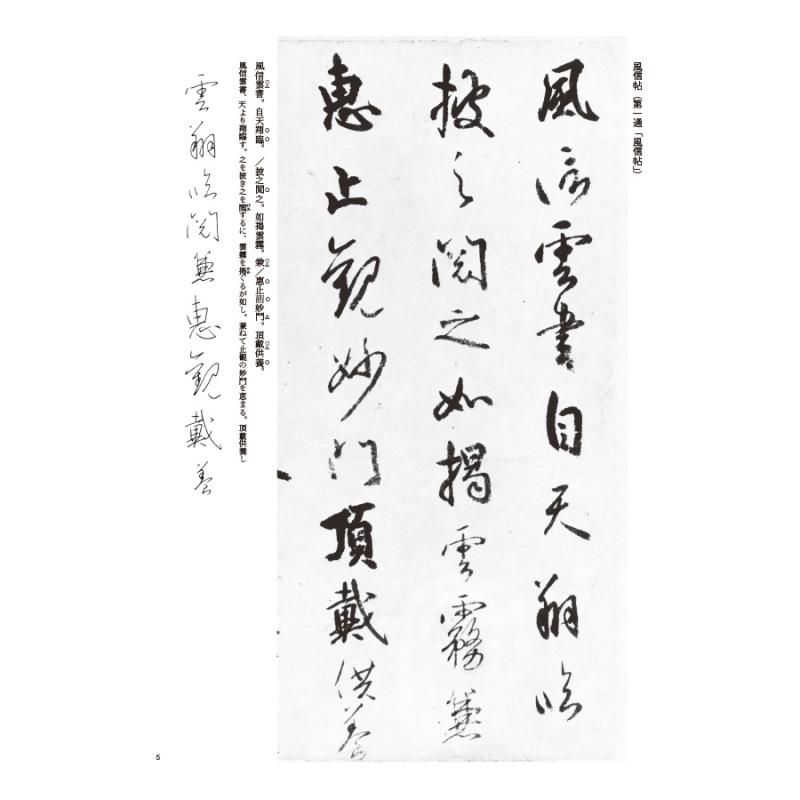 風信帖(第一通「風信帖」)
風信雲書自天翔臨
披之閲之如揭雲霧兼
惠止觀妙門頂戴供養
風信雲書。自天翔臨。/披之閲之。如揭雲霧。兼/惠止觀妙門。頂戴供養。
風信雲書、天より翔臨す。之を披き之を閲するに、雲霧を揭ぐるが如し。兼ねて止觀の妙門を惠まる。頂戴供養し
雲翔臨閲兼惠觀戴養
5